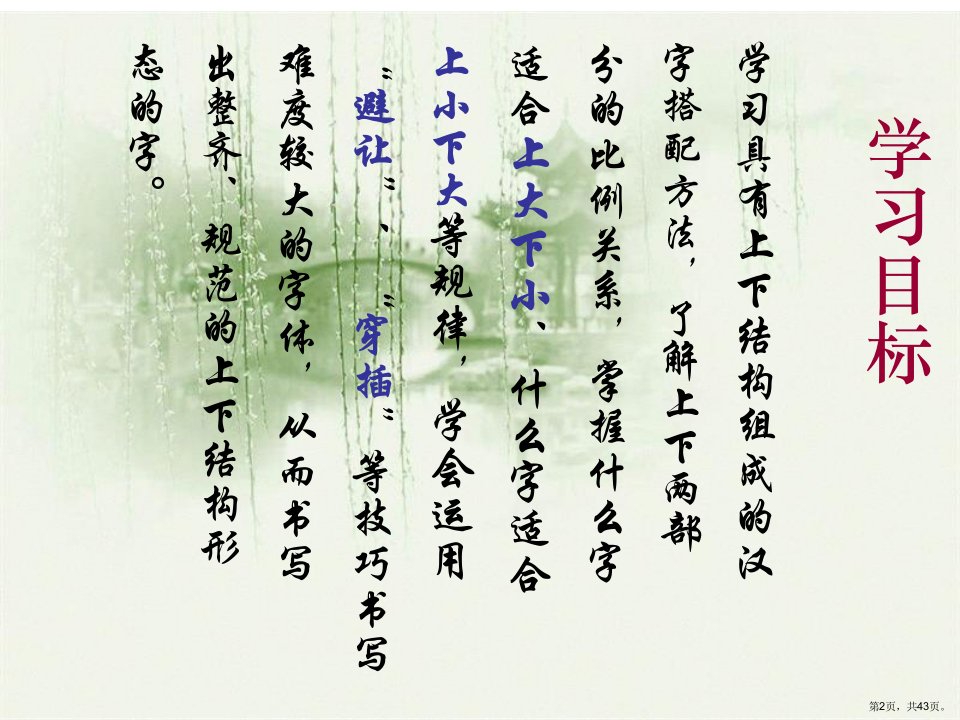 学习目标
学习具有上下结构组成的汉
字搭配方法，了解上下两部
分的比例关系，掌握什么字
适合上大下小、什么字适合
上小下大等规律，学会运用
“避让”、“穿插”等技巧书写
难度较大的字体，从而书写
出整齐、规范的上下结构形
态的字。
第2页，共43页。